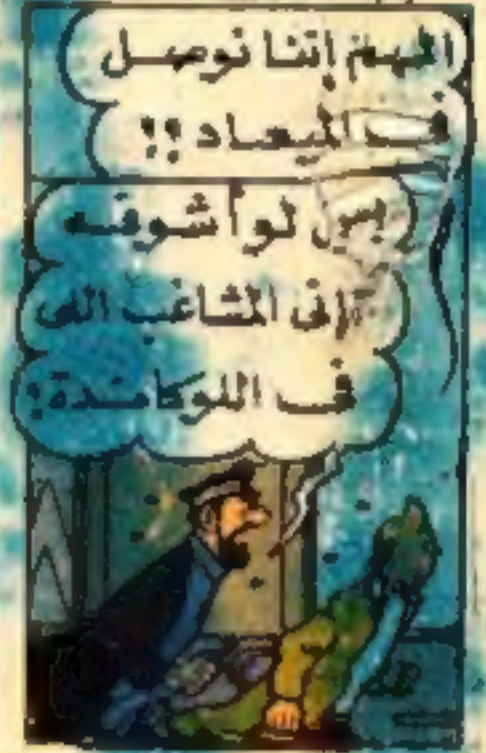 المهم إننا نوصل
ف الميعاد !!
بس لو أشوفه
المشاغب اللى
ف اللوكاندة!